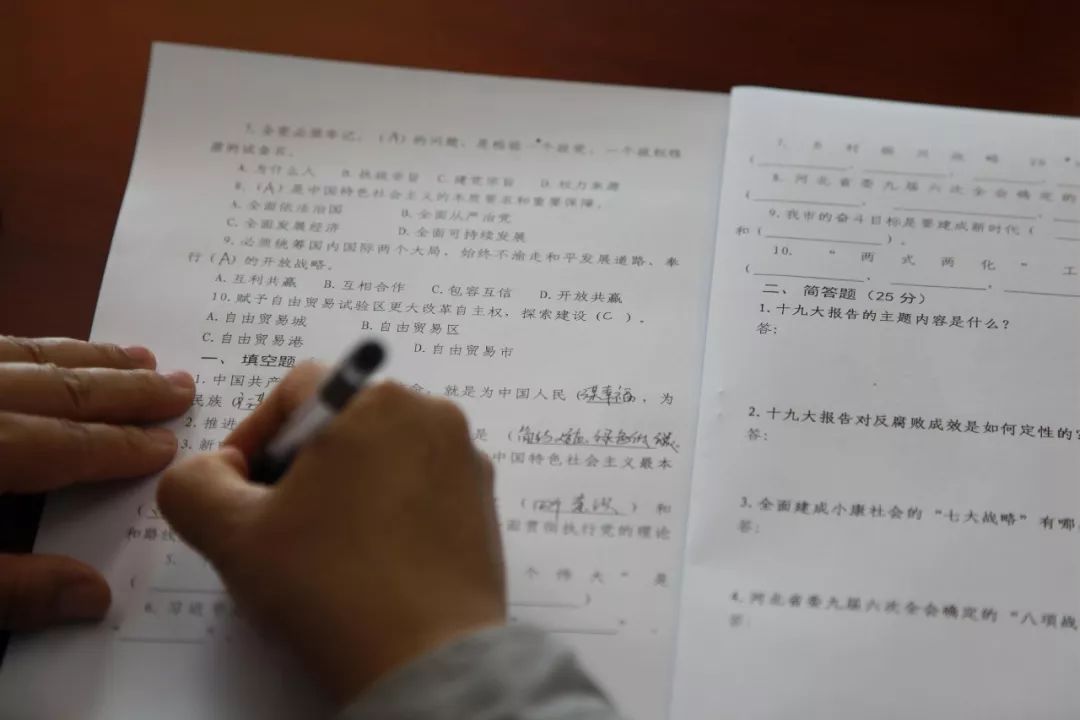 7. 全要必须牢记,(A)的问题,是检验一个政党、一个政权性
质的试金石。
A. 为什么人 B. 执政宗旨 C. 建党宗旨 D. 权力来源
8.(A)是中国特色社会主义的本质要求和重要保障。
A. 全面依法治国 B. 全面从严治党
C. 全面发展经济 D. 全面可持续发展
9. 必须统筹国内国际两个大局,始终不渝走和平发展道路、奉
行(A)的开放战略。
A. 互利共赢 B. 互相合作 C. 包容互信 D. 开放共赢
10. 赋予自由贸易试验区更大改革自主权,探索建设(C)。
A. 自由贸易城 B. 自由贸易区
C. 自由贸易港 D. 自由贸易市
一、填空题
1. 中国共产 就是为中国人民(谋幸福,为
民族(
2. 推进 是(简约适度、绿色低碳
3. 新 中国特色社会主义最本
( )和
和路线 面贯彻执行党的理论
5. 个伟大"是
( )
6. 习近平
7. 乡村振兴战略20
(
8. 河北省委九届六次全会确定的
(
9. 我市的奋斗目标是要建成新时代(
和( )。
10. "两式两化"工
(
二、简答题(25分)
1. 十九大报告的主题内容是什么?
答:
2. 十九大报告对反腐败成效是如何定性的?
答:
3. 全面建成小康社会的"七大战略"有哪
答:
4. 河北省委九届六次全会确定的"八项战
答: